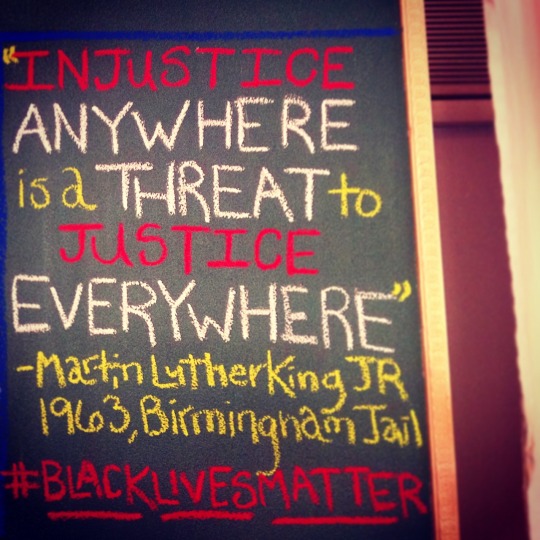 "INJUSTICE
ANYWHERE
is a THREAT to
JUSTICE
EVERYWHERE"
-Martin Luther King JR
1963, Birmingham Jail
#BLACKLIVESMATTER